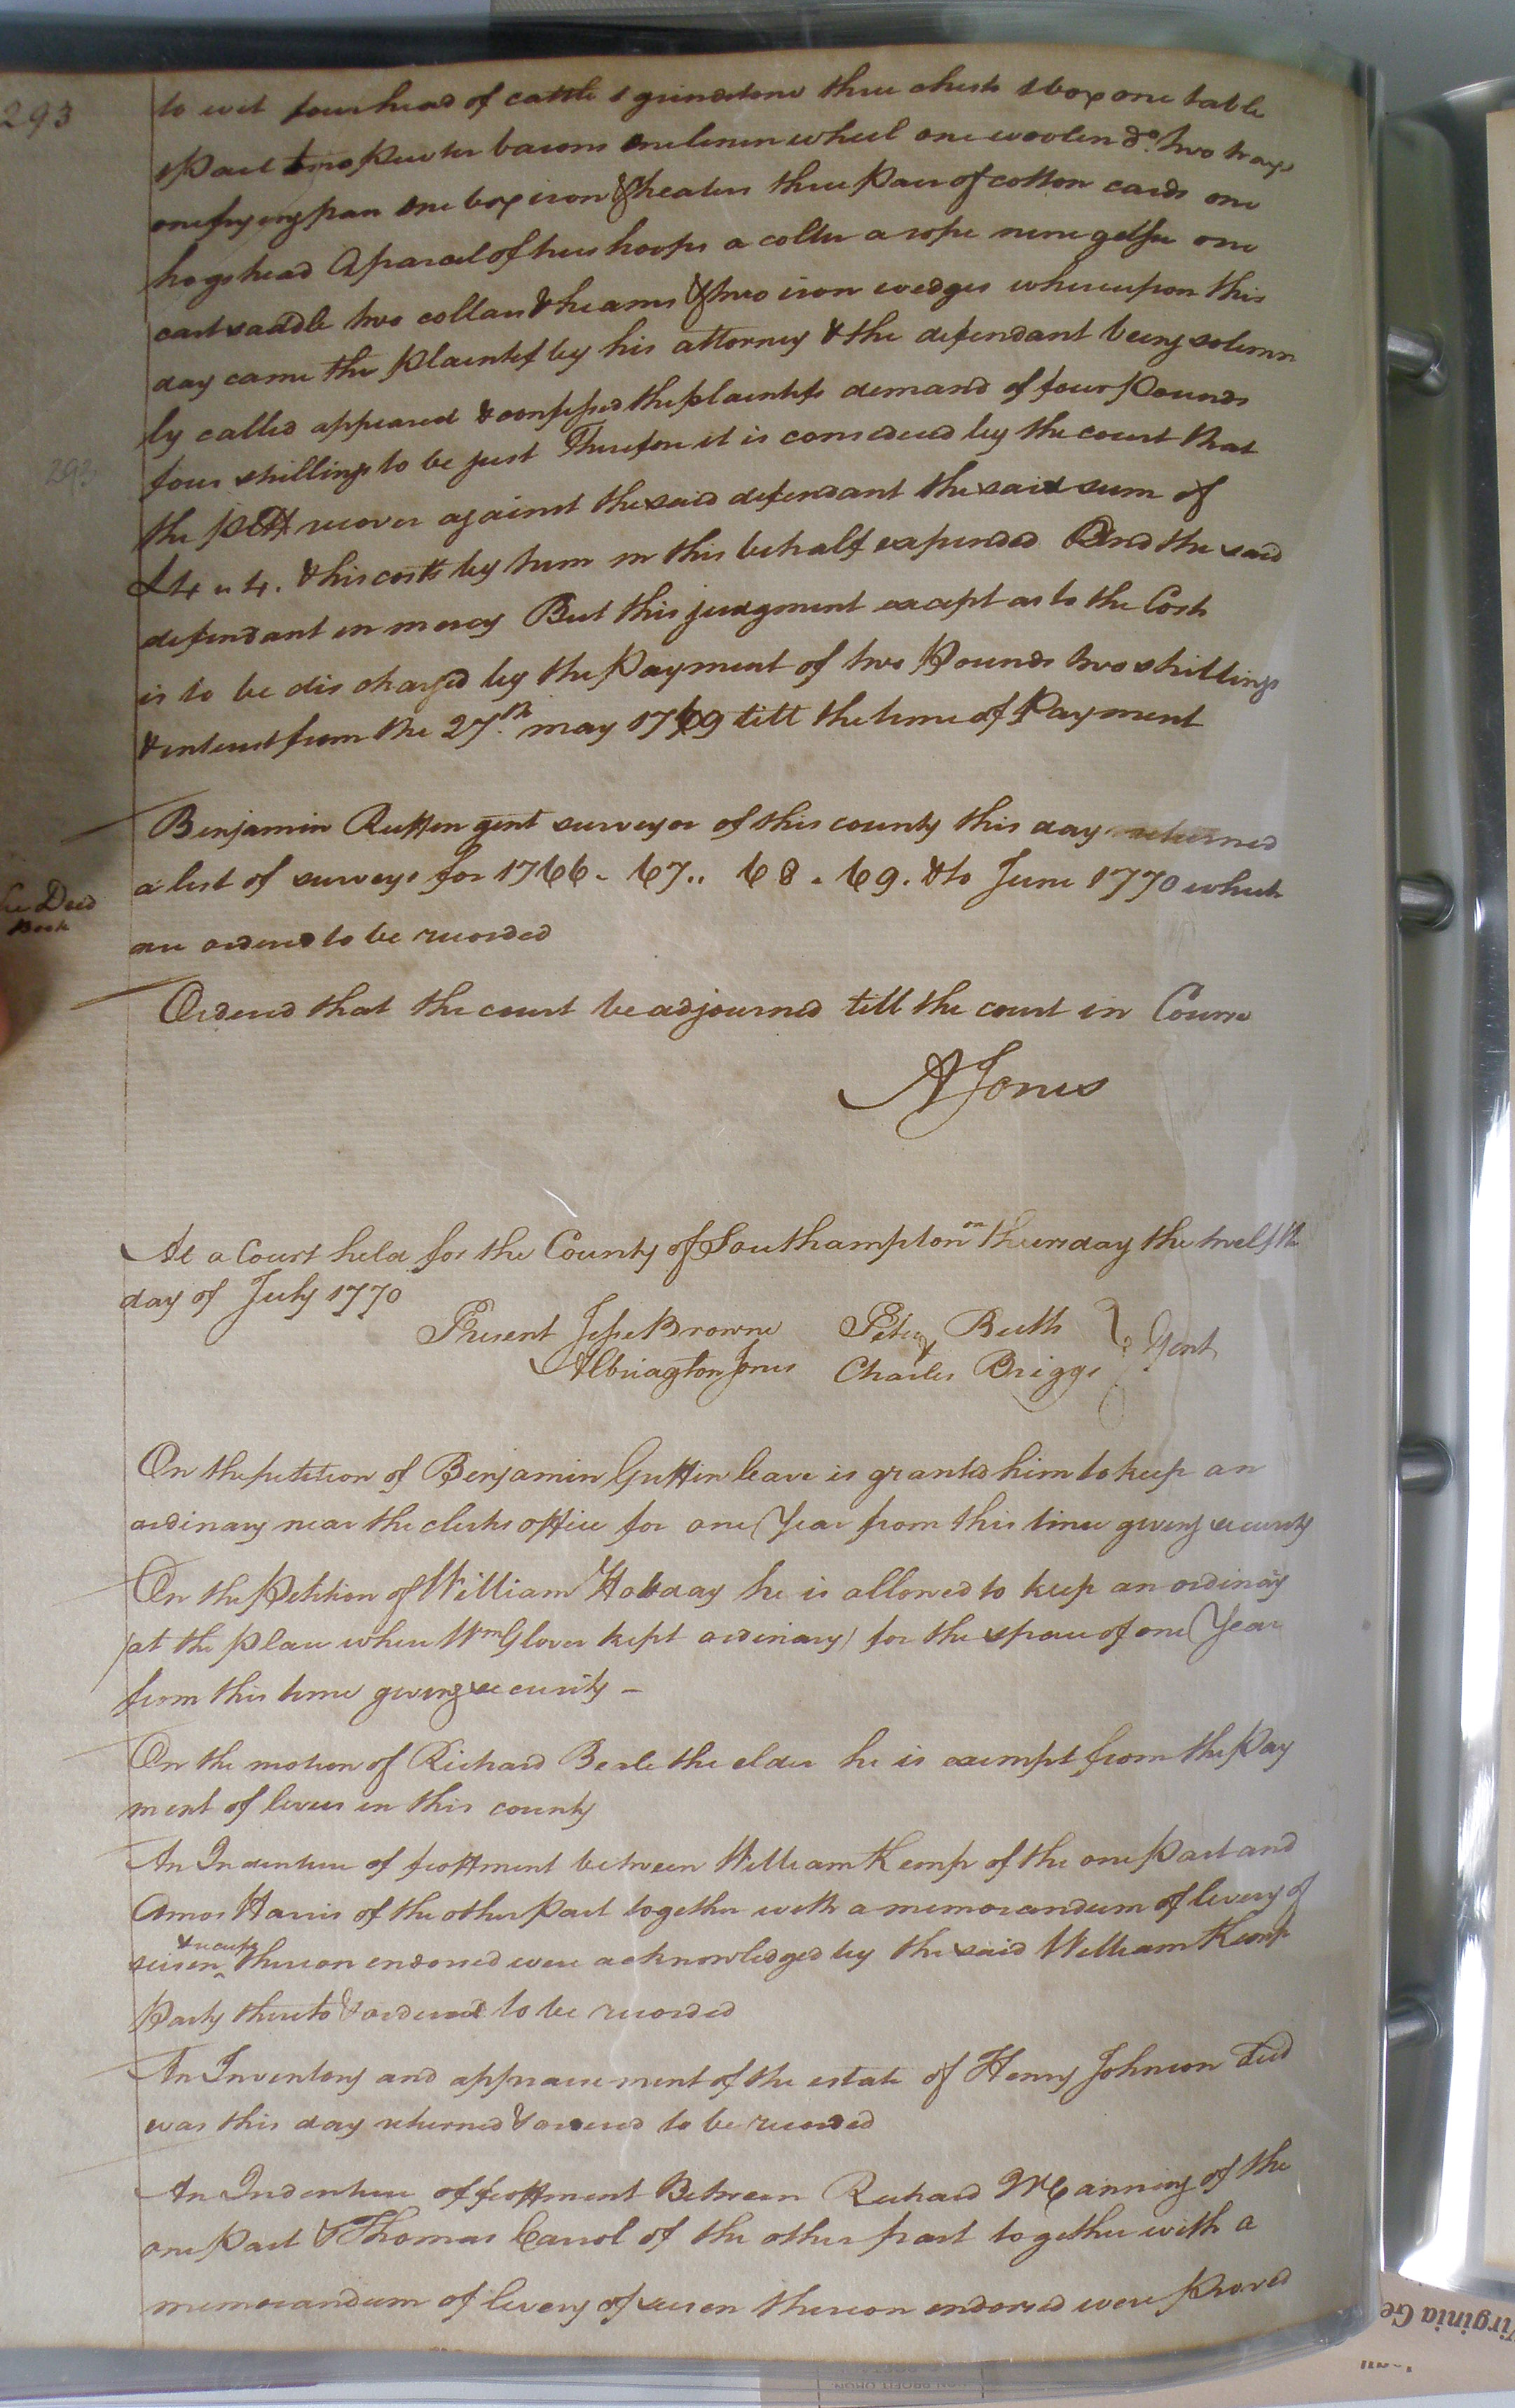 293
to wit four head of cattle 1 grindstone three chests 1 box one table
1 Pail two Pewter basons one linen wheel one woolen do. two trays
one frying pan one box iron & heaters three Pair of cotton cards one
hogshead a parcel of hoops a collar a rope nine geese one
cart saddle two collars & heams & two iron wedges whereupon this
day came the Plaintif by his attorney & the defendant being solemn
ly called appeared & confessed the plaintifs demand of four Pounds
four shillings to be just Therefore it is considered by the court that
293
the Pltf recover against the said defendant the said sum of
£4 " 4. & his costs by him in this behalf expended And the said
defendant in mercy But this judgment except as to the Costs
is to be discharged by the Payment of two Pounds two shillings
& interest from the 27th. may 1769 till the time of Payment
Benjamin Ruffin gent surveyor of this county this day returned
a list of surveys for 1766 - 67.. 68. 69. & to June 1770 which
See Deed
Book
are ordered to be recorded
Ordered that the court be adjourned till the court in Course
A Jones
At a Court held for the County of Southampton on thursday the twelfth
day of July 1770
Present Jesse Browne Peter Butts } Gent
Albriagton Jones & Charles Briggs
On the petition of Benjamin Griffin leave is granted him to keep an
ordinary near the clerks office for one Year from this time giving security
On the Petition of William Holladay he is allowed to keep an ordinary
(at the place where Wm Glover kept ordinary) for the space of one Year
from this time giving security -
On the motion of Richard Beale the elder he is exempt from the Pay
ment of levies in this county
An Indenture of feoffment between William Kemp of the one Part and
Amos Harris of the other Part together with a memorandum of livery of
seisen & receipt thereon endorsed were acknowledged by the said William Kemp
Party thereto & ordered to be recorded
An Inventory and appraisement of the estate of Henry Johnson Decd
was this day returned & ordered to be recorded
An Indenture of feoffment Between Richard Manning of the
one Part & Thomas Carrol of the other part together with a
memorandum of livery of seisen thereon endorsed were Proved